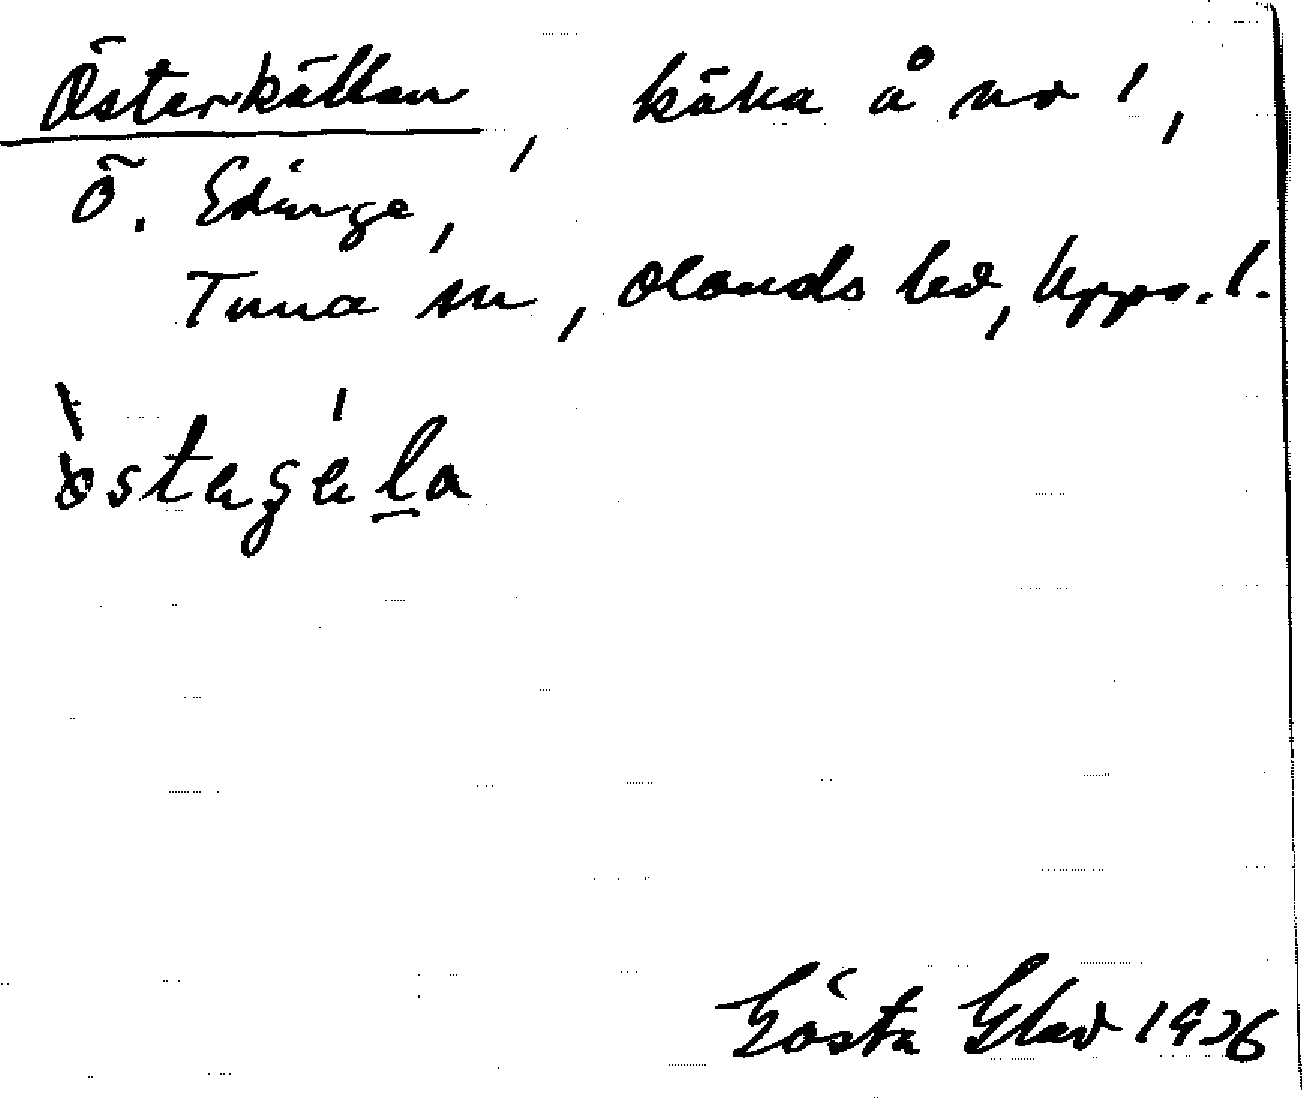 Österkällan, källa å nr 1,
Ö. Edinge,
Tuna sn, Olands hd, Upps. l.
Gösta Glad 1926